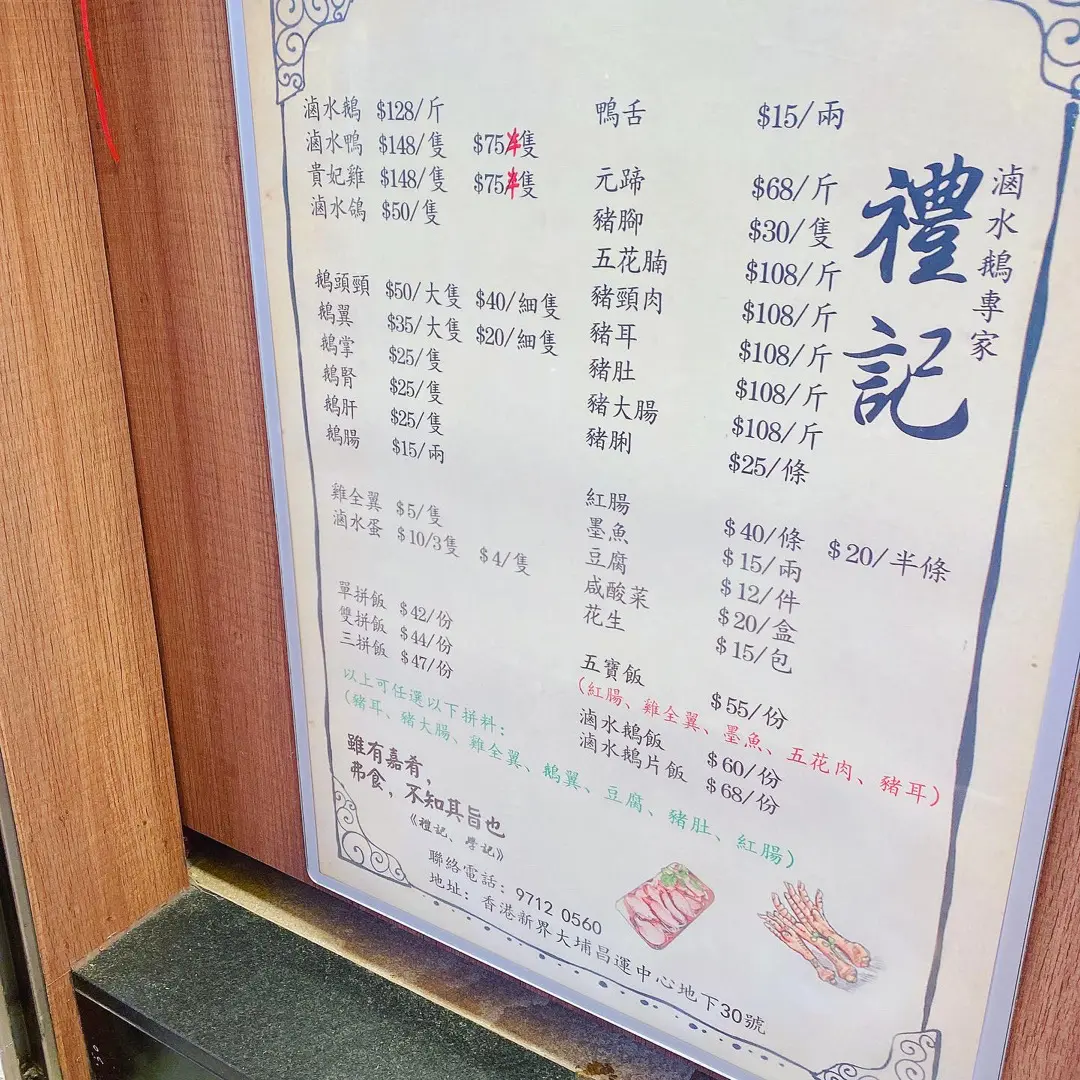 滷水鵝 $128/斤
滷水鴨 $148/隻 $75半隻
貴妃雞 $148/隻 $75半隻
滷水鴿 $50/隻
鵝頭頸 $50/大隻 $40/細隻
鵝翼 $35/大隻 $20/細隻
鵝掌 $25/隻
鵝腎 $25/隻
鵝肝 $25/隻
鵝腸 $15/兩
雞全翼 $5/隻
滷水蛋 $10/3隻 $4/隻
單拼飯 $42/份
雙拼飯 $44/份
三拼飯 $47/份
以上可任選以下拼料：
(豬耳、豬大腸、雞全翼、鵝翼、豆腐、豬肚、紅腸)
雖有嘉肴，
弗食，不知其旨也
《禮記、學記》
鴨舌 $15/兩
元蹄 $68/斤
豬腳 $30/隻
五花腩 $108/斤
豬頸肉 $108/斤
豬耳 $108/斤
豬肚 $108/斤
豬大腸 $108/斤
豬脷 $25/條
紅腸 $40/條 $20/半條
墨魚 $15/兩
豆腐 $12/件
咸酸菜 $20/盒
花生 $15/包
五寶飯 $55/份
(紅腸、雞全翼、墨魚、五花肉、豬耳)
滷水鵝飯 $60/份
滷水鵝片飯 $68/份
滷水鵝專家
禮記
聯絡電話：9712 0560
地址：香港新界大埔昌運中心地下30號